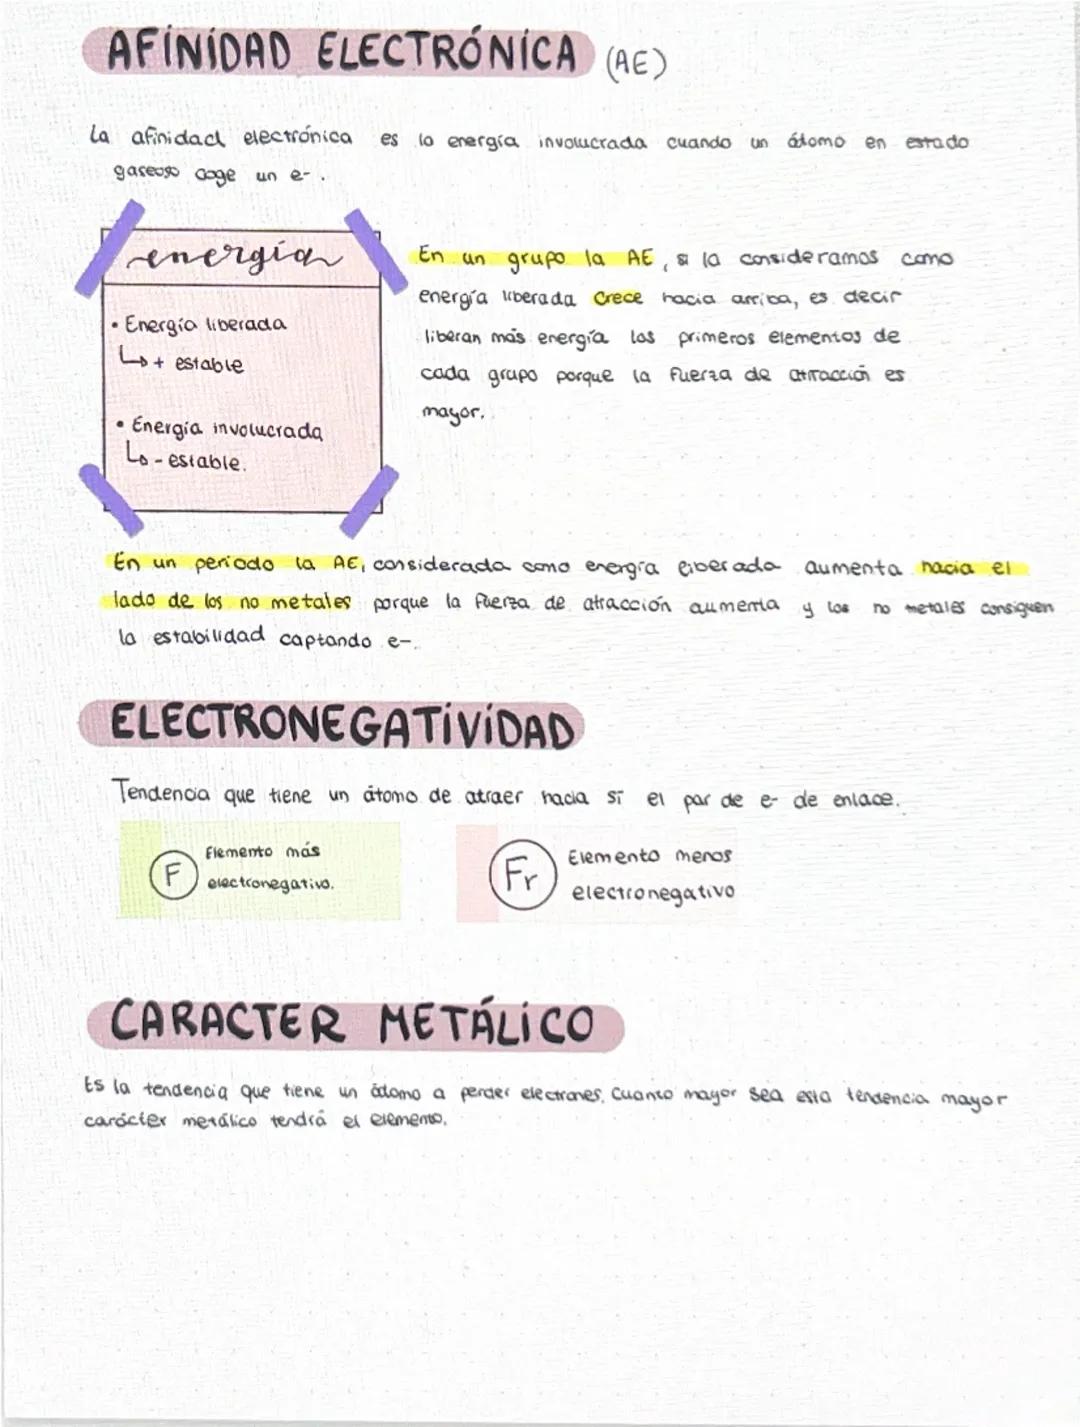 AFINIDAD ELECTRÓNICA (AE)
La afinidad electrónica es la energía involucrada cuando un átomo en estado
gaseoso coge un e-.
energía
• Energía liberada
↳ + estable
• Energía involucrada
↳ - estable.
En un grupo la AE, si la consideramos como
energía liberada crece hacia arriba, es decir
liberan más energía los primeros elementos de
cada grupo porque la fuerza de atracción es
mayor.
En un periodo la AE, considerada como energía liberada aumenta hacia el
lado de los no metales porque la fuerza de atracción aumenta y los no metales consiguen
la estabilidad captando e-.
ELECTRONEGATIVIDAD
Tendencia que tiene un átomo de atraer hacia sí el par de e- de enlace.
F
Elemento más
electronegativo.
Fr
Elemento menos
electronegativo
CARACTER METÁLICO
Es la tendencia que tiene un átomo a perder electrones. Cuanto mayor sea esta tendencia mayor
carácter metálico tendrá el elemento.